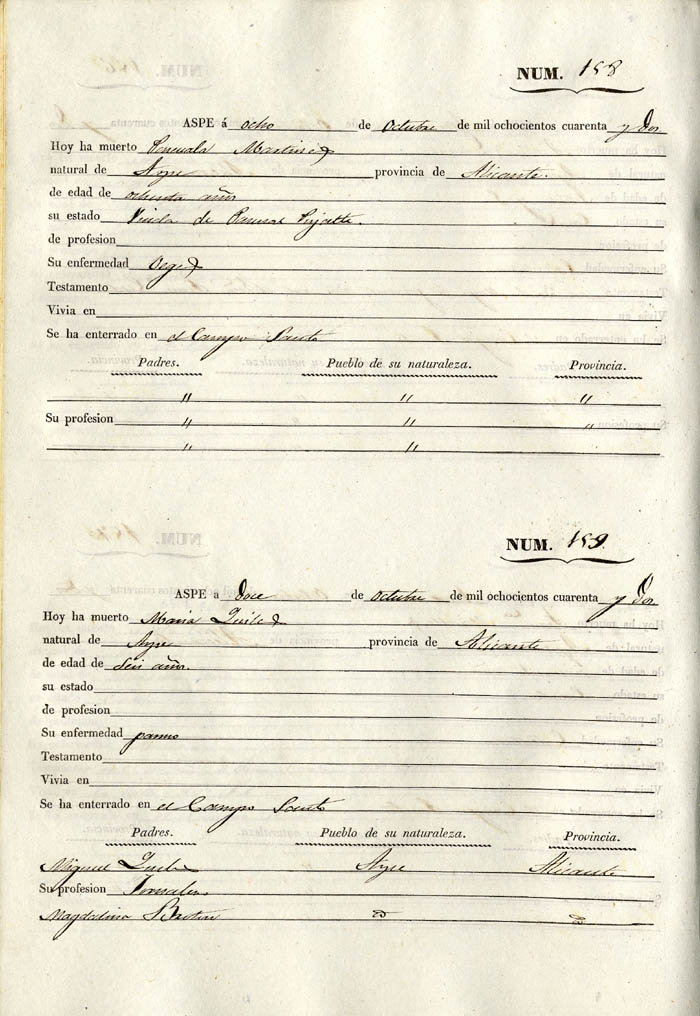 NUM. 158
ASPE á ocho de octubre de mil ochocientos cuarenta y Dos
Hoy ha muerto Martinez
natural de Aspe provincia de Alicante.
de edad de ochenta años
su estado Viuda de
de profesion
Su enfermedad
Testamento
Vivia en
Se ha enterrado en el Campo Santo
Padres. Pueblo de su naturaleza. Provincia.
" " "
Su profesion " " "
" "
NUM. 159.
ASPE a Doce de octubre de mil ochocientos cuarenta y Dos
Hoy ha muerto Maria
natural de Aspe provincia de Alicante
de edad de seis años.
su estado
de profesion
Su enfermedad pasmo
Testamento
Vivia en
Se ha enterrado en el Campo Santo
Padres. Pueblo de su naturaleza. Provincia.
Miguel Aspe Alicante
Su profesion Jornalero
Magdalena